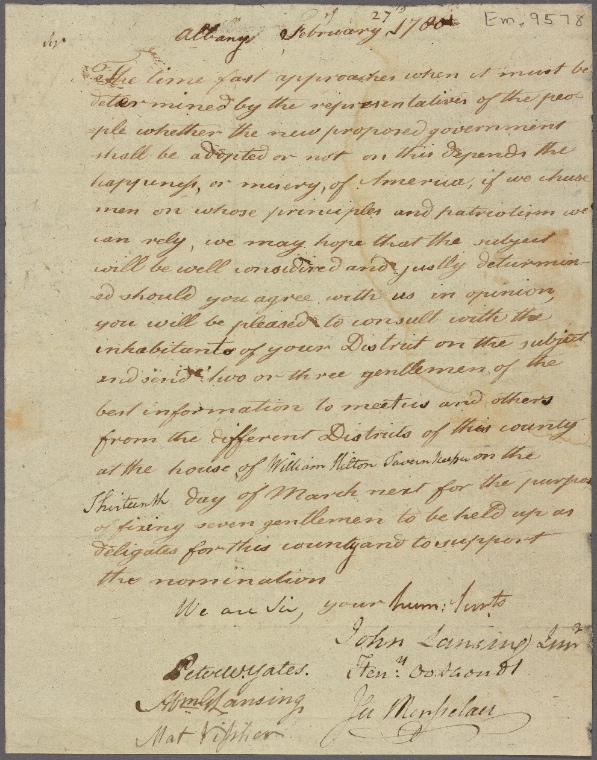 Em. 9578
Albany February 27th 1788
Sir
The time fast approaches when it must be
determined by the representatives of the peo-
ple whether the new proposed government
shall be adopted or not on this depends the
happiness, or misery, of America, if we chuse
men on whose principles and patriotism we
can rely, we may hope that the subject
will be well considired and justly determin-
ed should you agree with us in opinion,
you will be pleased to consult with the
inhabitants of your District on the subject
and send two or three gentlemen of the
best information to meet us and others
from the different Districts of this county
at the house of William Hilton Tavernkeeper on the
Thirteenth day of March next for the purpose
of fixing seven gentlemen to be held up as
deligates for this county and to support
the nomination
We are Sir, your hum: Servts
John Lansing Junr
Peter W Yates. Henry Oothoudt
Abm G Lansing
Jer V Renselaer
Mat Visscher